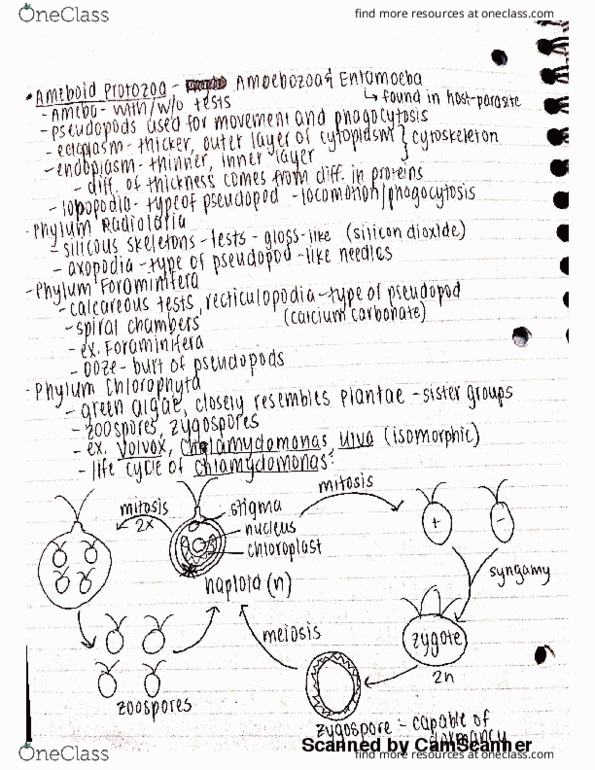 OneClass
find more resources at oneclass.com
• Ameboid Protozoa - Amoebozoa & Entamoeba
↳ found in host-parasite
- Ameba - with/w/o tests
- pseudopods used for movement and phagocytosis
- ectoplasm - thicker, outer layer of cytoplasm } cytoskeleton
- endoplasm - thinner, inner layer
- diff. of thickness comes from diff. in proteins
- lobopodia - type of pseudopod - locomotion/phagocytosis
- Phylum Radiolaria
- silicous skeletons - tests - glass-like (silicon dioxide)
- axopodia - type of pseudopod - like needles
- Phylum Foraminifera
- calcareous tests, recticulopodia - type of pseudopod
- spiral chambers (calcium carbonate)
- ex. Foraminifera
- Ooze - of pseudopods
- Phylum Chlorophyta
- green algae, closely resembles Plantae - sister groups
- zoospores, zygospores
- ex. Volvox, Chalamydomonas, Ulva (isomorphic)
- life cycle of Chlamydomonas:
mitosis
2x
stigma
nucleus
chloroplast
haploid (n)
mitosis
+
-
syngamy
zygote
2n
meiosis
zoospores
zygospore - capable of
dormancy
Scanned by CamScanner
OneClass
find more resources at oneclass.com